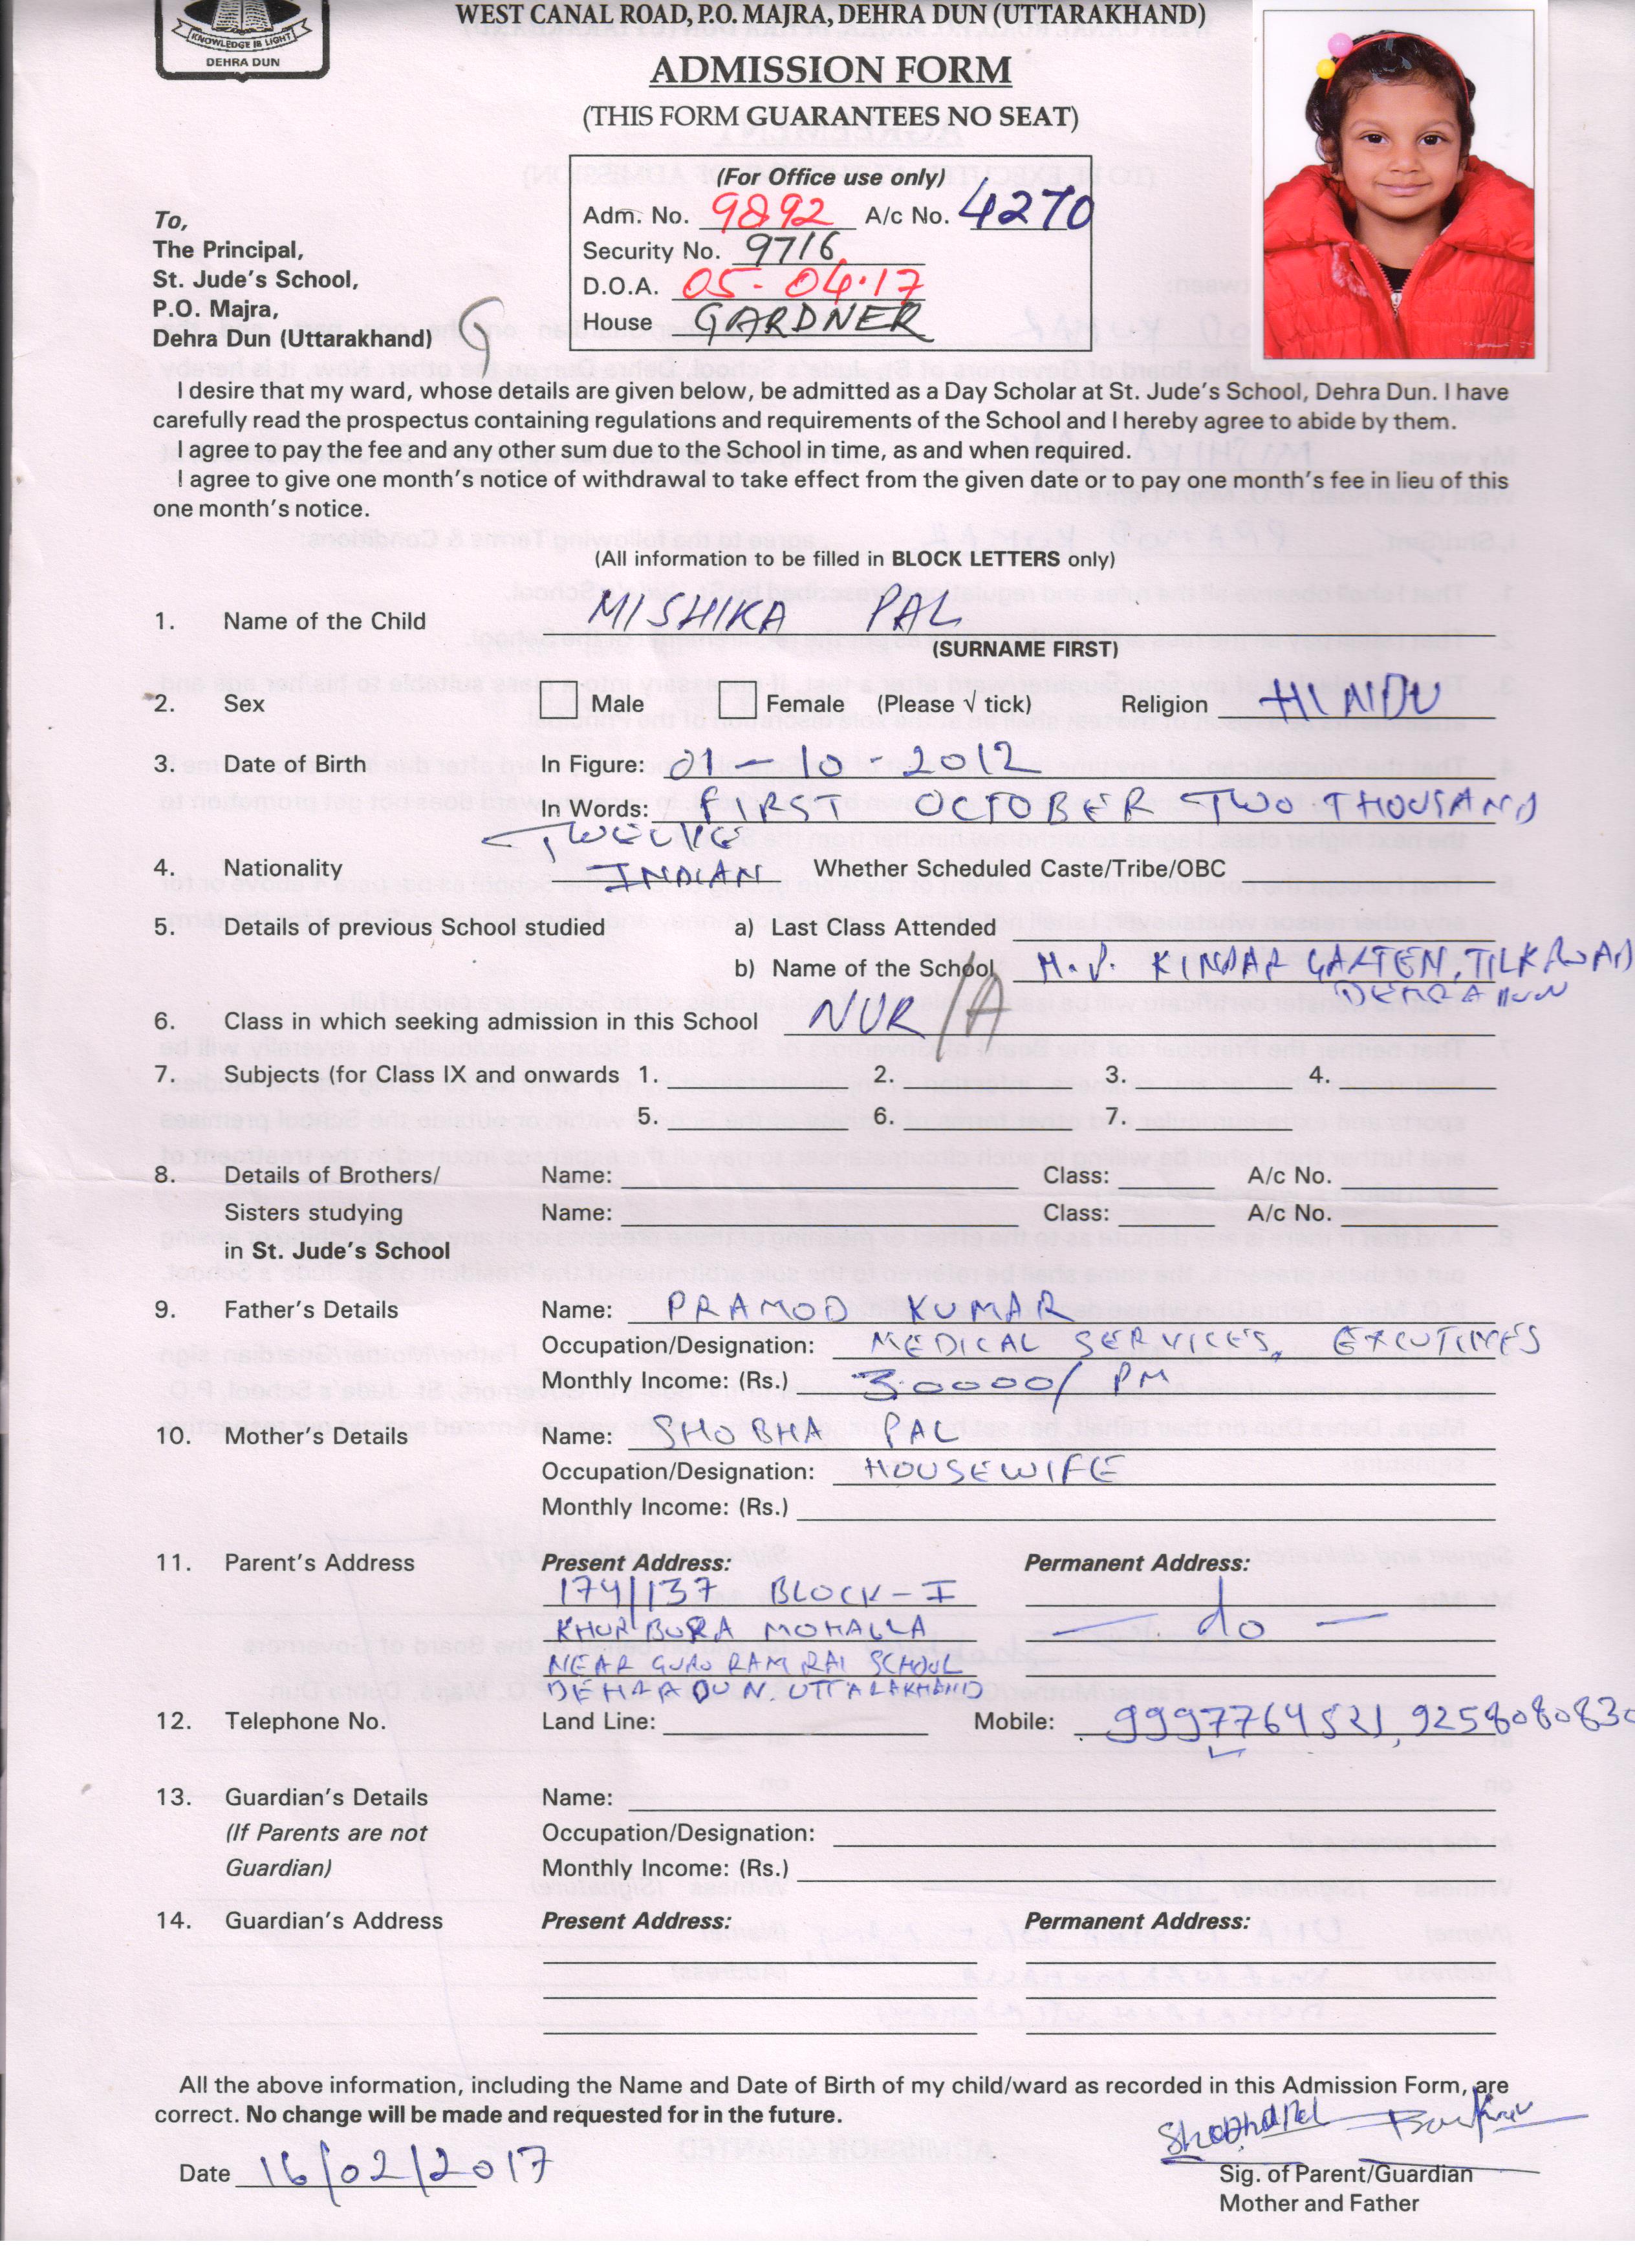 KNOWLEDGE IS LIGHT
DEHRA DUN
WEST CANAL ROAD, P.O. MAJRA, DEHRA DUN (UTTARAKHAND)
ADMISSION FORM
(THIS FORM GUARANTEES NO SEAT)
(For Office use only)
Adm. No. 9892 A/c No. 4270
Security No. 9716
D.O.A. 05-04-17
House GARDNER
To,
The Principal,
St. Jude's School,
P.O. Majra,
Dehra Dun (Uttarakhand)
I desire that my ward, whose details are given below, be admitted as a Day Scholar at St. Jude's School, Dehra Dun. I have
carefully read the prospectus containing regulations and requirements of the School and I hereby agree to abide by them.
I agree to pay the fee and any other sum due to the School in time, as and when required.
I agree to give one month's notice of withdrawal to take effect from the given date or to pay one month's fee in lieu of this
one month's notice.
(All information to be filled in BLOCK LETTERS only)
1. Name of the Child MISHIKA PAL
(SURNAME FIRST)
2. Sex Male Female (Please √ tick) Religion HINDU
3. Date of Birth In Figure: 01-10-2012
In Words: FIRST OCTOBER TWO THOUSAND
TWELVE
4. Nationality INDIAN Whether Scheduled Caste/Tribe/OBC
5. Details of previous School studied a) Last Class Attended
b) Name of the School M.J. KINDAR GARTEN, TILK ROAD
DEHRADUN
6. Class in which seeking admission in this School NUR/A
7. Subjects (for Class IX and onwards 1. 2. 3. 4.
5. 6. 7.
8. Details of Brothers/ Name: Class: A/c No.
Sisters studying Name: Class: A/c No.
in St. Jude's School
9. Father's Details Name: PRAMOD KUMAR
Occupation/Designation: MEDICAL SERVICES, EXCUTIVES
Monthly Income: (Rs.) 30000/ PM
10. Mother's Details Name: SHOBHA PAL
Occupation/Designation: HOUSEWIFE
Monthly Income: (Rs.)
11. Parent's Address Present Address: Permanent Address:
174/137 BLOCK-I
KHURBURA MOHALLA — do —
NEAR GURU RAM RAI SCHOOL
DEHRADUN. UTTARAKHAND
12. Telephone No. Land Line: Mobile: 9997764521, 9258080830
13. Guardian's Details Name:
(If Parents are not Occupation/Designation:
Guardian) Monthly Income: (Rs.)
14. Guardian's Address Present Address: Permanent Address:
All the above information, including the Name and Date of Birth of my child/ward as recorded in this Admission Form, are
correct. No change will be made and requested for in the future.
Shobha Pal
Date 16/02/2017
Sig. of Parent/Guardian
Mother and Father